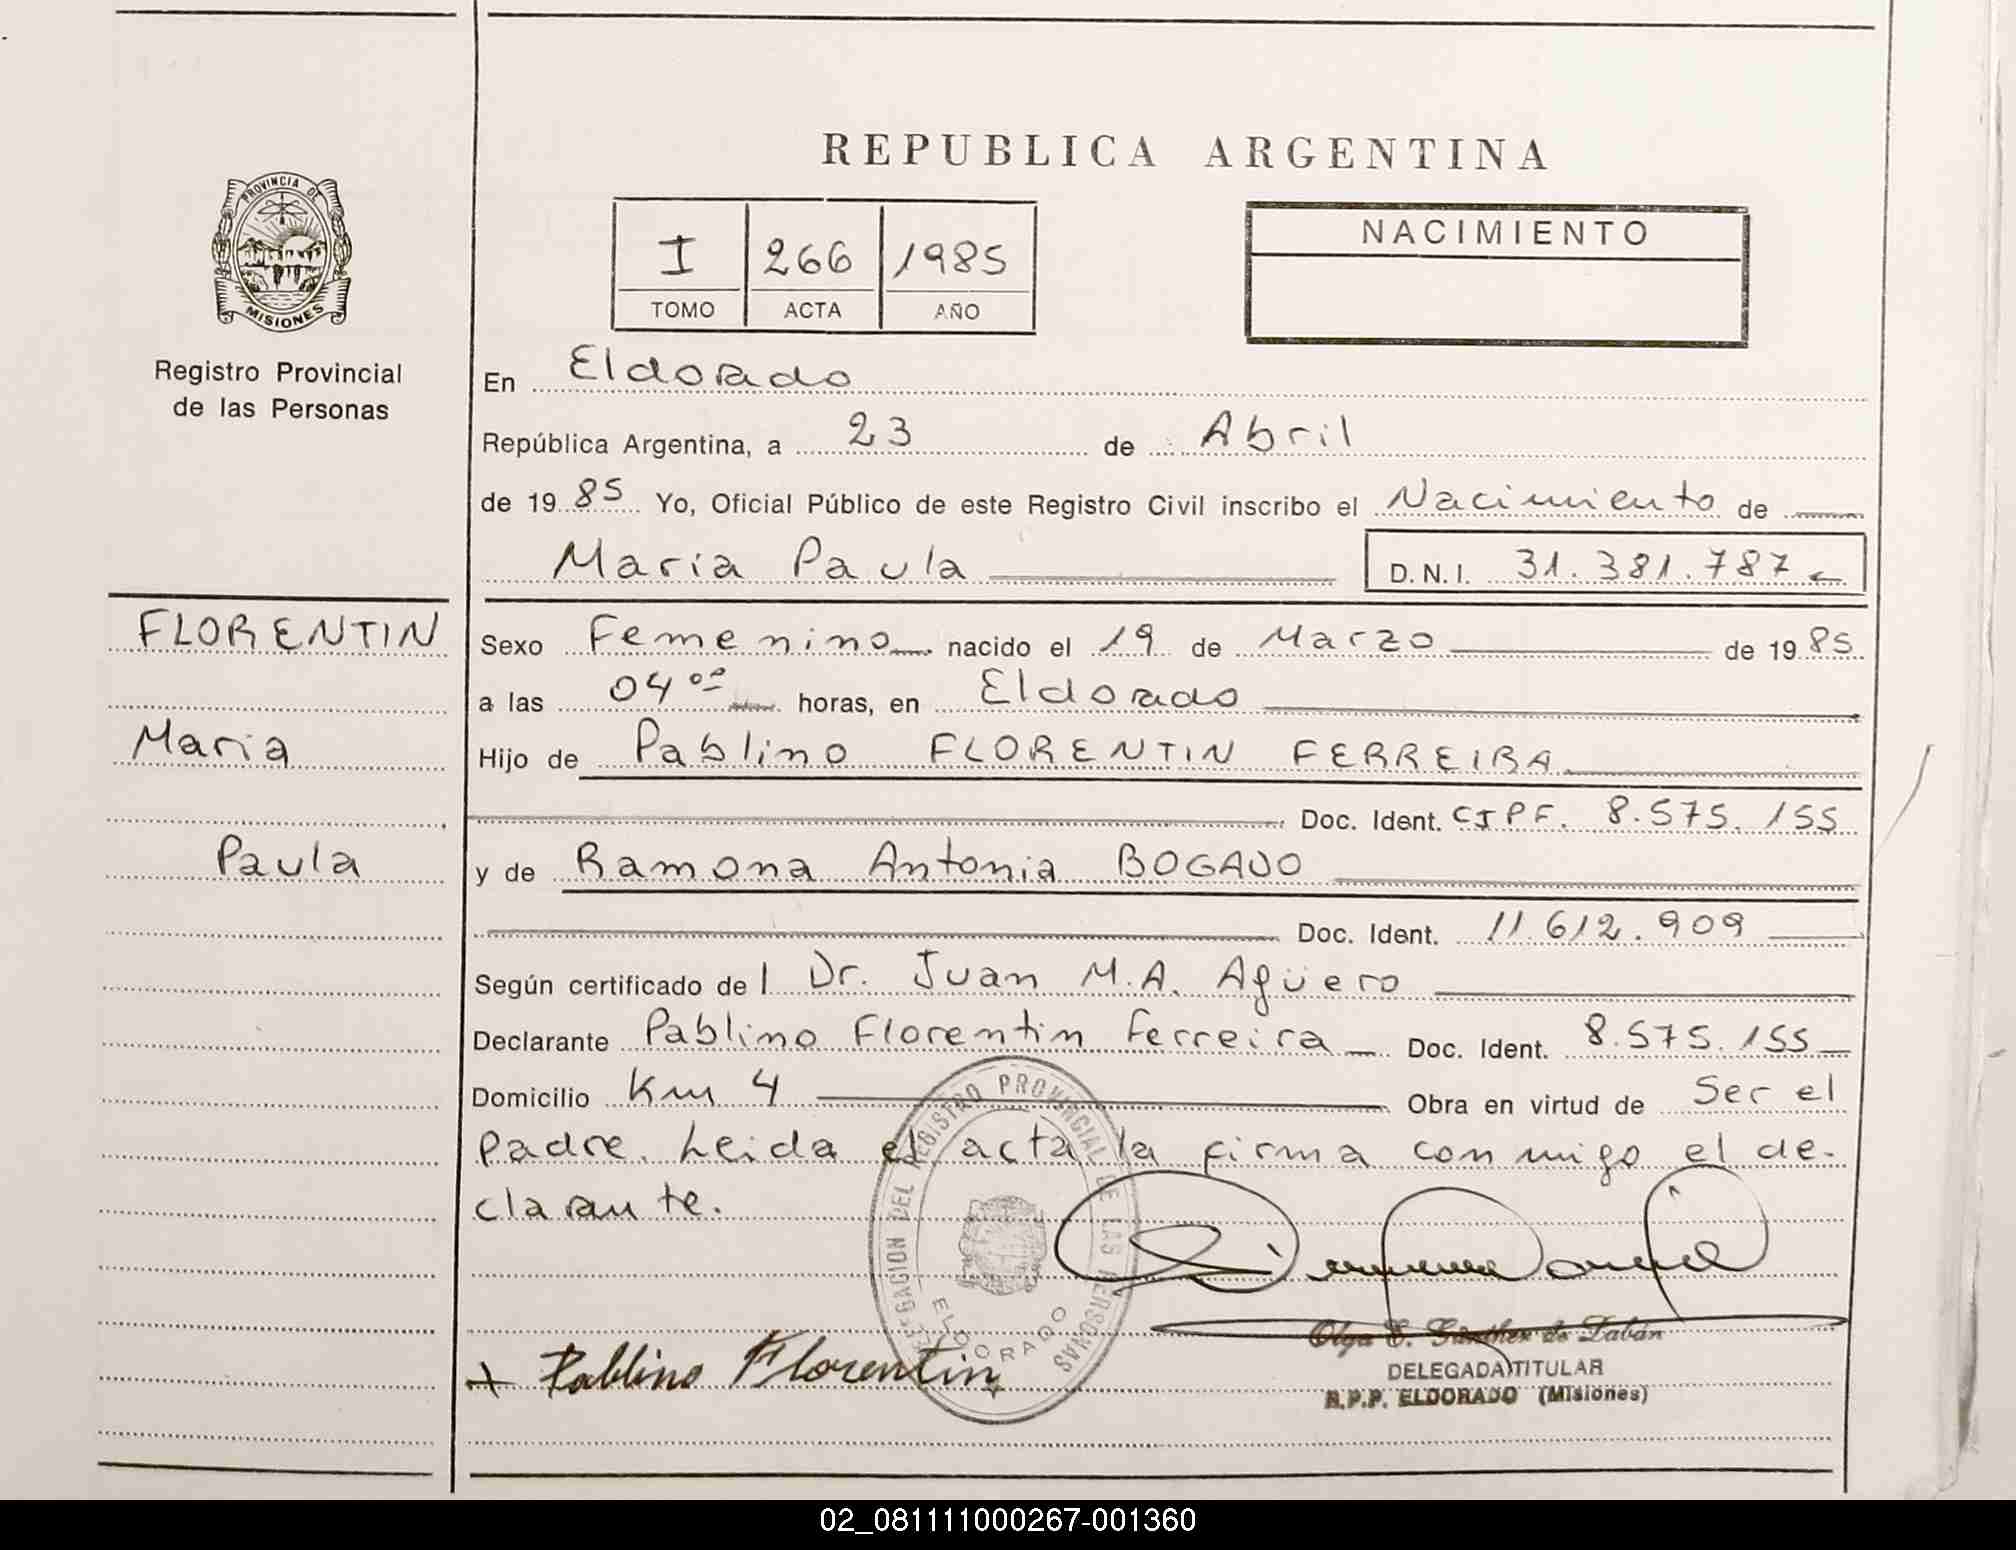 REPUBLICA ARGENTINA
PROVINCIA DE
MISIONES
Registro Provincial
de las Personas
I 266 1985
TOMO ACTA AÑO
NACIMIENTO
En Eldorado
República Argentina, a 23 de Abril
de 1985 Yo, Oficial Público de este Registro Civil inscribo el Nacimiento de
Maria Paula D.N.I. 31.381.787
FLORENTIN
Maria
Paula
Sexo Femenino nacido el 19 de Marzo de 1985
a las 04 oo horas, en Eldorado
Hijo de Pablino FLORENTIN FERREIRA
Doc. Ident. CIPF. 8.575.155
y de Ramona Antonia BOGADO
Doc. Ident. 11.612.909
Según certificado del Dr. Juan M.A. Agüero
Declarante Pablino Florentin Ferreira Doc. Ident. 8.575.155
Domicilio Km 4 Obra en virtud de Ser el
padre. Leida el acta la firma conmigo el de-
clarante.
DELEGACION DEL REGISTRO PROVINCIAL DE LAS PERSONAS
ELDORADO
+ Pablino Florentin
Olga E. Günther de Zabán
DELEGADA TITULAR
R.P.P. ELDORADO (Misiones)
02_081111000267-001360